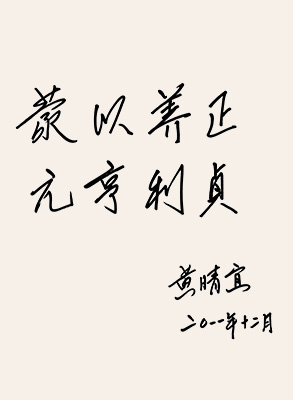 蒙以养正
元亨利贞
黄晴宜
二〇一一年十二月